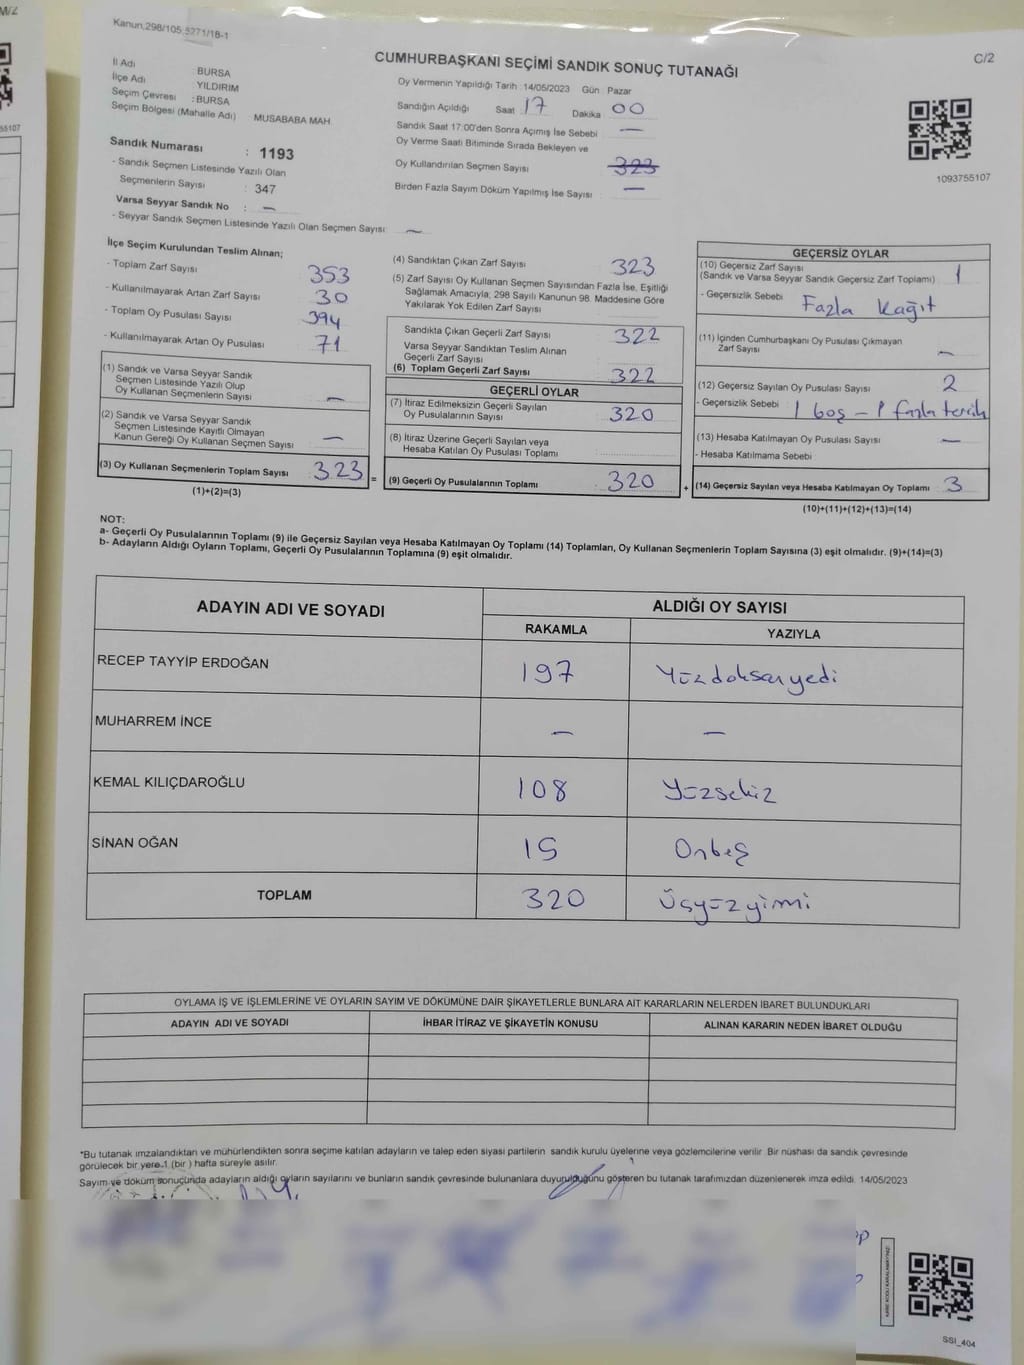 M/Z
55107
Kanun,298/105,5271/18-1
CUMHURBAŞKANI SEÇİMİ SANDIK SONUÇ TUTANAĞI
C/2
İl Adı : BURSA
İlçe Adı YILDIRIM
Seçim Çevresi : BURSA
Seçim Bölgesi (Mahalle Adı) MUSABABA MAH.
Oy Vermenin Yapıldığı Tarih :14/05/2023 Gün : Pazar
Sandığın Açıldığı Saat 17 Dakika 00
Sandık Saat 17:00'den Sonra Açılmış İse Sebebi —
Oy Verme Saati Bitiminde Sırada Bekleyen ve
Oy Kullandırılan Seçmen Sayısı : 323
Birden Fazla Sayım Döküm Yapılmış İse Sayısı : —
1093755107
Sandık Numarası : 1193
- Sandık Seçmen Listesinde Yazılı Olan
Seçmenlerin Sayısı : 347
Varsa Seyyar Sandık No : —
- Seyyar Sandık Seçmen Listesinde Yazılı Olan Seçmen Sayısı: —
İlçe Seçim Kurulundan Teslim Alınan;
- Toplam Zarf Sayısı 353
- Kullanılmayarak Artan Zarf Sayısı : 30
- Toplam Oy Pusulası Sayısı : 394
- Kullanılmayarak Artan Oy Pusulası : 71
(1) Sandık ve Varsa Seyyar Sandık
Seçmen Listesinde Yazılı Olup
Oy Kullanan Seçmenlerin Sayısı : —
(2) Sandık ve Varsa Seyyar Sandık
Seçmen Listesinde Kayıtlı Olmayan
Kanun Gereği Oy Kullanan Seçmen Sayısı : —
(3) Oy Kullanan Seçmenlerin Toplam Sayısı : 323 =
(1)+(2)=(3)
(4) Sandıktan Çıkan Zarf Sayısı : 323
(5) Zarf Sayısı Oy Kullanan Seçmen Sayısından Fazla İse, Eşitliği
Sağlamak Amacıyla, 298 Sayılı Kanunun 98. Maddesine Göre
Yakılarak Yok Edilen Zarf Sayısı :
Sandıkta Çıkan Geçerli Zarf Sayısı : 322
Varsa Seyyar Sandıktan Teslim Alınan
Geçerli Zarf Sayısı :
(6) Toplam Geçerli Zarf Sayısı : 322
GEÇERLİ OYLAR
(7) İtiraz Edilmeksizin Geçerli Sayılan
Oy Pusulalarının Sayısı : 320
(8) İtiraz Üzerine Geçerli Sayılan veya
Hesaba Katılan Oy Pusulası Toplamı :
(9) Geçerli Oy Pusulalarının Toplamı : 320 +
GEÇERSİZ OYLAR
(10) Geçersiz Zarf Sayısı
(Sandık ve Varsa Seyyar Sandık Geçersiz Zarf Toplamı) : 1
- Geçersizlik Sebebi : Fazla Kağıt
(11) İçinden Cumhurbaşkanı Oy Pusulası Çıkmayan
Zarf Sayısı : —
(12) Geçersiz Sayılan Oy Pusulası Sayısı : 2
- Geçersizlik Sebebi : 1 boş – 1 fazla tercih
(13) Hesaba Katılmayan Oy Pusulası Sayısı : —
- Hesaba Katılmama Sebebi :
(14) Geçersiz Sayılan veya Hesaba Katılmayan Oy Toplamı : 3
(10)+(11)+(12)+(13)=(14)
NOT:
a- Geçerli Oy Pusulalarının Toplamı (9) ile Geçersiz Sayılan veya Hesaba Katılmayan Oy Toplamı (14) Toplamları, Oy Kullanan Seçmenlerin Toplam Sayısına (3) eşit olmalıdır. (9)+(14)=(3)
b- Adayların Aldığı Oyların Toplamı, Geçerli Oy Pusulalarının Toplamına (9) eşit olmalıdır.
ADAYIN ADI VE SOYADI ALDIĞI OY SAYISI
RAKAMLA YAZIYLA
RECEP TAYYİP ERDOĞAN 197 Yüzdoksanyedi
MUHARREM İNCE — —
KEMAL KILIÇDAROĞLU 108 Yüzsekiz
SİNAN OĞAN 15 Onbeş
TOPLAM 320 Üçyüzyirmi
OYLAMA İŞ VE İŞLEMLERİNE VE OYLARIN SAYIM VE DÖKÜMÜNE DAİR ŞİKAYETLERLE BUNLARA AİT KARARLARIN NELERDEN İBARET BULUNDUKLARI
ADAYIN ADI VE SOYADI İHBAR İTİRAZ VE ŞİKAYETİN KONUSU ALINAN KARARIN NEDEN İBARET OLDUĞU
*Bu tutanak imzalandıktan ve mühürlendikten sonra seçime katılan adayların ve talep eden siyasi partilerin sandık kurulu üyelerine veya gözlemcilerine verilir. Bir nüshası da sandık çevresinde
görülecek bir yere 1 (bir ) hafta süreyle asılır.
Sayım ve döküm sonucunda adayların aldığı oyların sayılarını ve bunların sandık çevresinde bulunanlara duyurulduğunu gösteren bu tutanak tarafımızdan düzenlenerek imza edildi. 14/05/2023
SSI_404